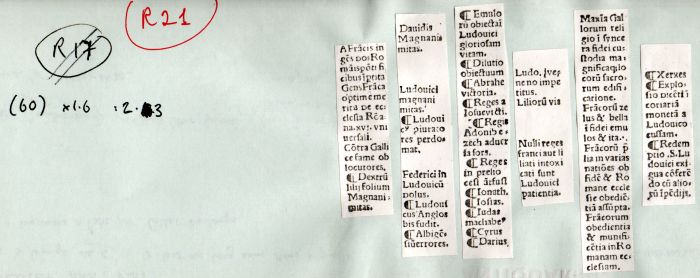 R17
R21
(60) x1.6 : 2.3
A Frãcis in
gẽs
cibus ꝑtita
Gens Frãca
optime me
rita de ec
clesia Rõa
na.xvj. vni
uersali.
Cõtra Galli
ce fame ob
locutores.
¶ Dextrũ
lilij folium
Magnani
mitas.
Dauidis
Magnani
mitas.
Ludouici
magnani
mitas.
¶ Ludoui
c⁹ piurato
res perdo
mat.
Federici in
Ludouicũ
dolus.
¶ Ludoui
cus Anglos
bis fudit.
¶ Albigẽ
¶ Emulo
rũ obiectai
Ludouici
gloriosam
vitam.
¶ Dilutio
obiectuum
¶ Abrahe
victoria.
¶ Reges a
Iosue victi.
¶ Regis
Adonibe
zech aduer
sa fors.
¶ Reges
in prelio
cesi
¶ Ionath.
¶ Iosias.
¶ Iudas
machabe⁹
¶ Cyrus
¶ Darius.
Ludo.
neno impe
titus.
Liliorũ vis
Nulli reges
franci aut li
liati intoxi
cati sunt
Ludouici
patientia.
Maxĩa Gal
lorum reli
gio ĩ sync
ra fidei cu
stodia ma
gnificatio
corũ sacro
rum edifi
catione.
Frãcorũ ze
lus & bella
ĩ fidei emu
los & ita.
Frãcorũ p
lia in varias
natiões ob
fidẽ & Ro
mane eccle
sie obediẽ
tiã assũpta.
Frãcorum
obedientia
& munifi
cẽtia in Ro
manam ec
clesiam.
¶ Xerxes
¶ Explo
sio
coriariã
monetã a
Ludouico
cussam.
¶ Redem
ptio .S. Lu
douici exi
gua cõferẽ
do cũ alio
rũ ĩpẽdijs.